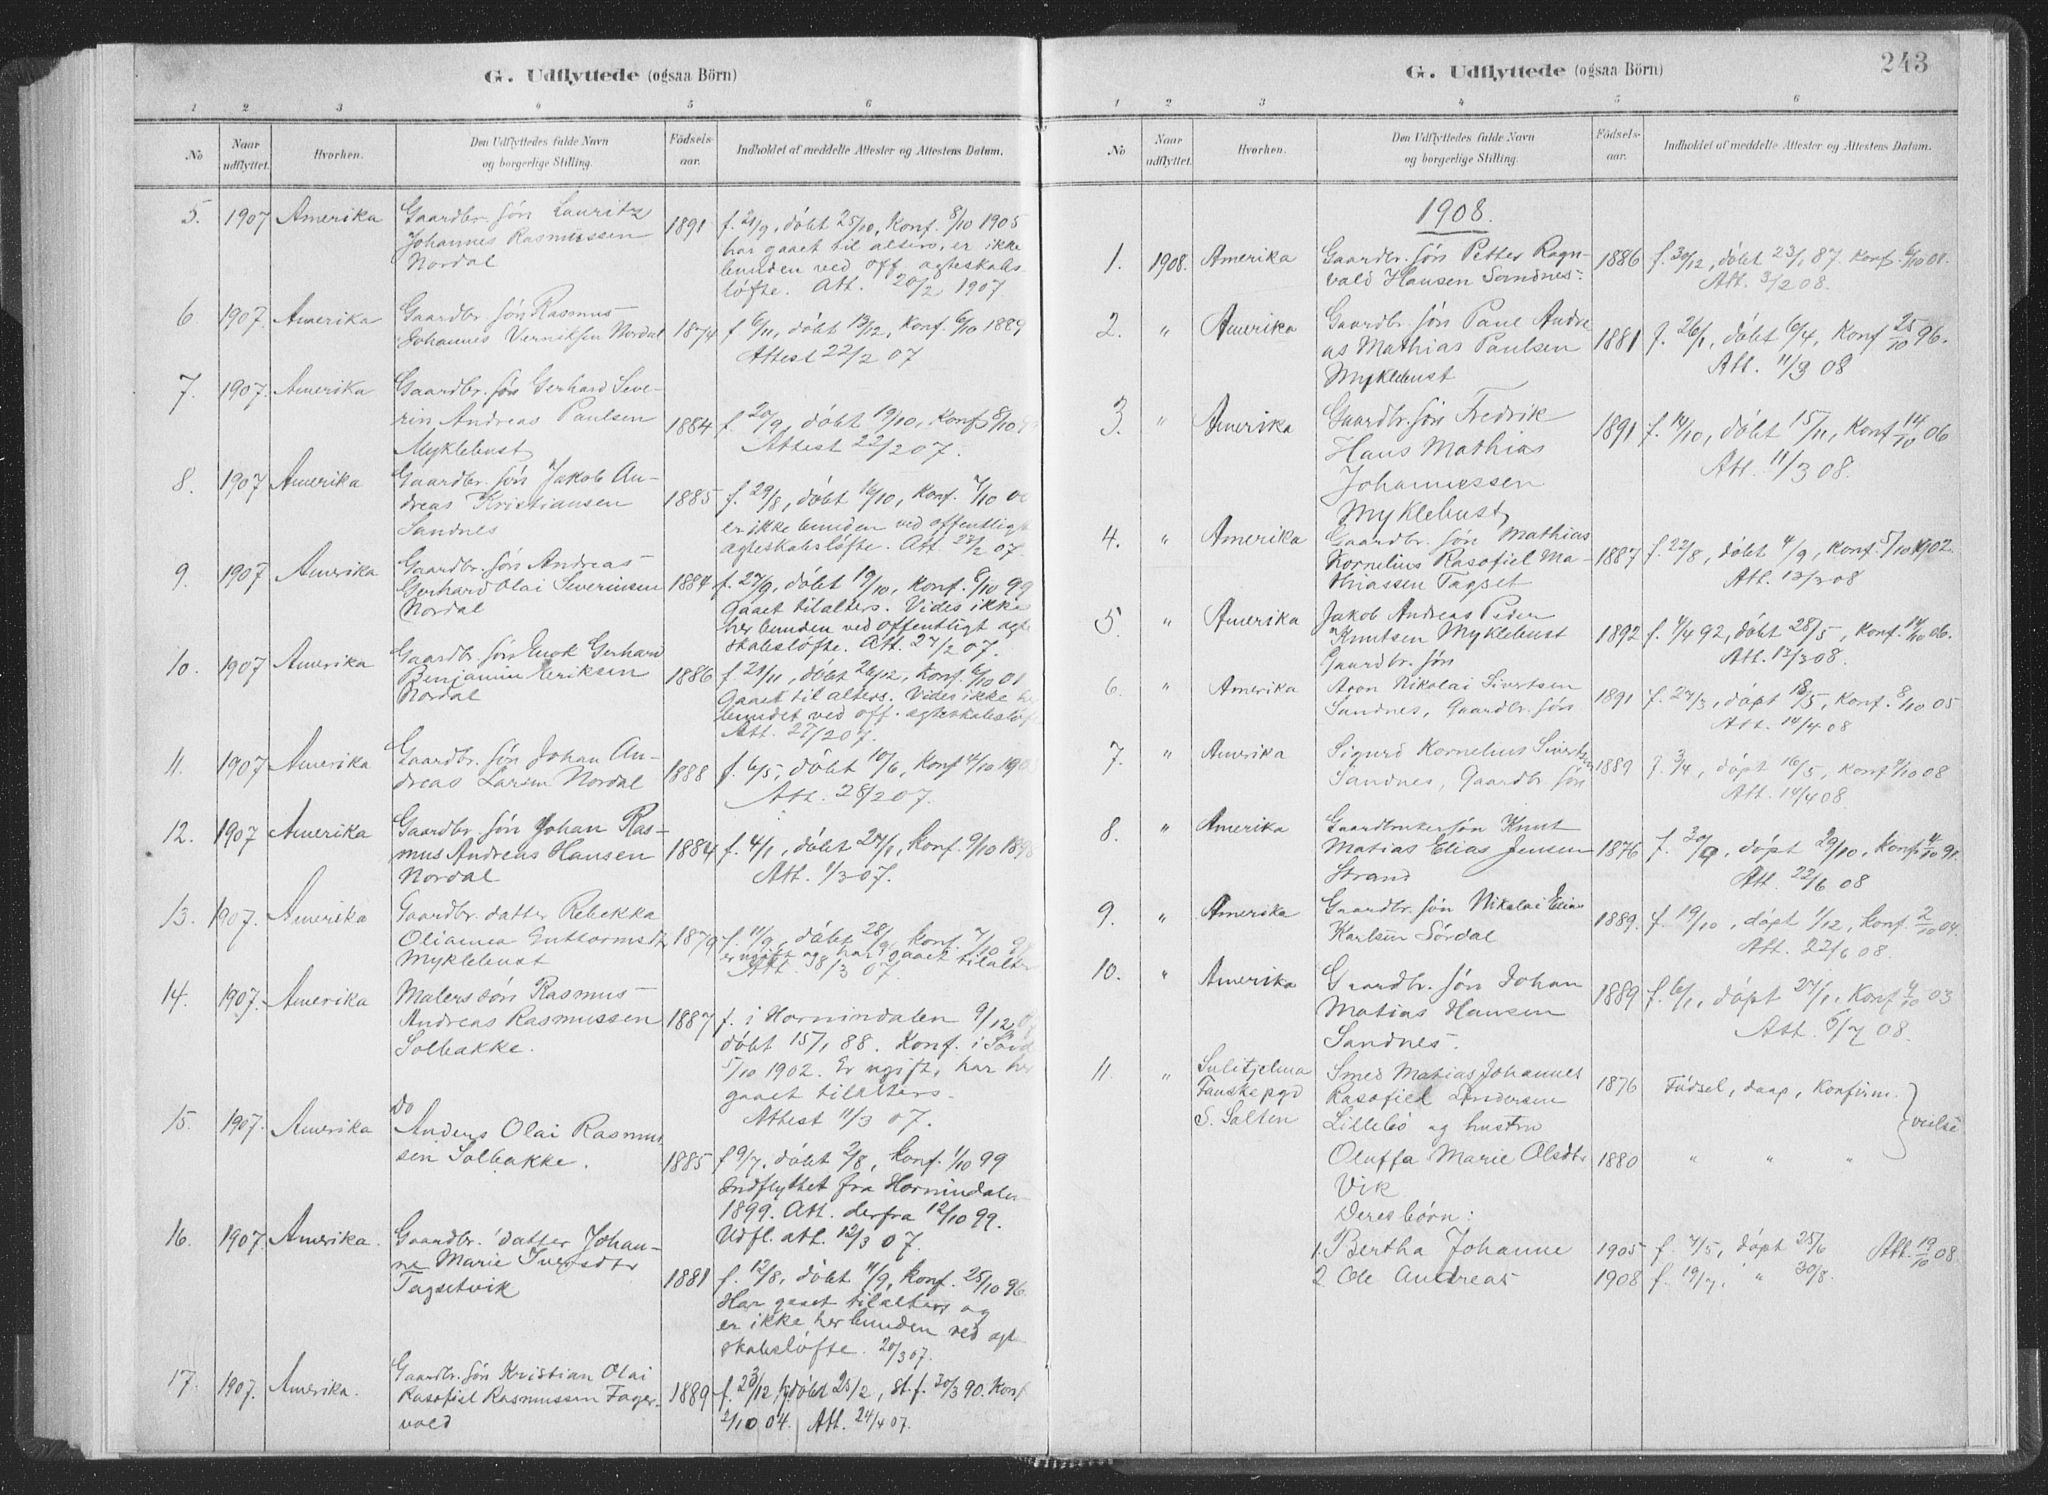 G. Udflyttede (ogsaa Börn)
1 2 3 4 5 6
No
Naar udflyttet.
Hvorhen.
Den Udflyttedes fulde Navn og borgerlige Stilling.
Födsels-aar.
Indholdet af meddelte Attester og Attestens Datum.
5. 1907 Amerika Gaardbr. søn Lauritz
Johannes Rasmussen
Nordal
1891 f. 21/9, döbt 25/10, Konf. 8/10 1905
har gaaet til alters, er ikke
bunden ved off. ægteskabs-
löfte. Att. 20/2 1907
6. 1907. Amerika Gaardbr. sön Rasmus
Johannes Nordal
1874 f 6/11, döbt 13/12, Konf. 6/10 1889
Attest 22/2 07
7. 1907. Amerika Gaardbr. sön Gerhard Seve-
rin Andreas Paulsen
Myklebust
1884 f. 20/9, döbt 19/10, Konf 8/10
Attest 22/2 07.
8. 1907 Amerika Gaardbr. sön Jakob An-
dreas Kristiansen
Sandnes
1885 f. 29/8, döbt 16/10, Konf. 7/10 00
er ikke bunden ved offentligt
ægteskabslöfte. Att. 27/2 07.
9. 1907 Amerika Gaardbr. sön Andreas
Gerhard Olai Severinsen
Nordal
1884 f. 27/9, döbt 19/10, Konf. 8/10 99
Gaaet tilalters. Vides ikke
her bunden ved offentligt ægte
skabslöfte. Att. 27/2 07.
10. 1907 Amerika Gaardbr. sön Enok Gerhard
Benjamin Eriksen
Nordal
1886 f. 21/11, döbt 26/12, Konf. 6/10 01
Gaaet til alters. Vides ikke
bundet ved off. ægteskabslöf
Att. 27/2 07.
11. 1907 Amerika Gaardbr. sön Johan An-
dreas Larsen Nordal
1888 f. 6/5, döbt 10/6, Konf 4/10
Att. 28/2 07.
12. 1907 Amerika Gaardbr. sön Johan Ras-
mus Andreas Hansen
Nordal
1884 f. 4/1, döbt 27/1, Konf. 9/10 1898
Att. 1/3 07.
13. 1907. Amerika Gaardbr. datter Rebekka
Oliamea Guttormsdt
Myklebust
1879 f. 11/9, döbt 28/9, Konf. 7/10
er ugift og har gaaet tilalter
Att. 8/3 07.
14. 1907. Amerika Malers sön Rasmus
Andreas Rasmussen
Solbakke.
1887 f. i Hornindalen 9/12
döbt 15/1 88. Konf. i
5/10 1902. Er ugift, har her
gaaet tilalters.
Attest 11/3 07.
15. 1907. Amerika Do
Anders Olai Rasmus
sen Solbakke.
1885 f 9/7, döbt 2/8, Konf. 1/10 99
Indflyttet fra Hornindalen
1899. Att. derfra 12/10 99.
Udfl. att. 12/3 07.
16. 1907. Amerika. Gaardbr. datter Johan-
ne Marie Iversdtr
Tagsetvik
1881 f. 12/8, döbt 11/9, Konf. 25/10 96
Har gaaet tilalters og
er ikke her bunden ved ægt
skabslöfte. 20/3 07.
17. 1907. Amerika. Gaardbr. sön Kristian Olai
Rasofiel Rasmussen Fager-
vold
1889 f. 23/12, döbt 25/2, st. f. 30/3 90. Konf
2/10 04. Att. 24/4 07.
243
G. Udflyttede (ogsaa Börn)
1 2 3 4 5 6
No
Naar udflyttet.
Hvorhen.
Den Udflyttedes fulde Navn og borgerlige Stilling.
Födsels-aar.
Indholdet af meddelte Attester og Attestens Datum.
1908.
1. 1908. Amerika Gaardbr. sön Petter Ragn-
vald Hansen Sandnes.
1886 f. 30/12, döbt 23/1 87. Konf. 6/10 01.
Att. 3/2 08.
2. " Amerika Gaardbr. sön Paul Andre
as Mathias Paulsen
Myklebust
1881 f. 26/1, döbt 6/4, Konf 25/10 96.
Att. 11/3 08
3. " Amerika Gaardbr. sön Fredrik
Hans Mathias
Johannessen
Myklebust
1891 f. 14/10, döbt 15/11, Konf 14/10 06
Att. 11/3 08.
4. " Amerika Gaardbr. sön Mathias
Kornelius Rasofiel Ma-
thiassen Tagset
1887 f. 22/8, döbt 4/9, Konf. 5/10 1902.
Att. 12/3 08
5. " Amerika Jakob Andreas Peder
Knutsen Myklebust
Gaardbr. sön
1892 f. 4/4 92, döbt 28/5, Konf. 14/10 06.
Att. 12/3 08.
6. " Amerika Aron Nikolai Sivertsen
Sandnes, Gaardbr. sön
1891 f. 27/3, döpt 18/5, Konf. 8/10 05
Att. 14/4 08
7. " Amerika Sigurd Kornelius Sivertsen
Sandnes, Gaardbr. sön
1889 f. 3/4, döpt 16/5, Konf 4/10 08
Att. 14/4 08.
8. " Amerika Gaardbrukersön Knut
Matias Elias Jensen
Strand
1876 f. 30/9, döpt 29/10, Konf 4/10 91.
Att. 22/6 08
9. " Amerika Gaardbr. sön Nikolai Elias
Karlsen Sördal
1889. f. 19/10, döpt 1/12, Konf. 2/10 04.
Att. 22/6 08.
10. " Amerika Gaardbr. sön Johan
Matias Hansen
Sandnes.
1889 f. 6/1, döpt 27/1, Konf 4/10 03
Att. 6/7 08.
11. " Sulitjelma
Fauske pgd
S. Salten
Smed Matias Johannes
Rasofiel Andersen
Lillebö og hustru
1876 Födsel, daap, Konfirm.
vielse
Oluffa Marie Olsdtr
Vik
1880 " " "
Deres börn:
1. Bertha Johanne 1905 f. 7/5, döpt 25/6 Att. 19/10 08.
2 Ole Andreas 1908 f. 19/7, " 30/8.